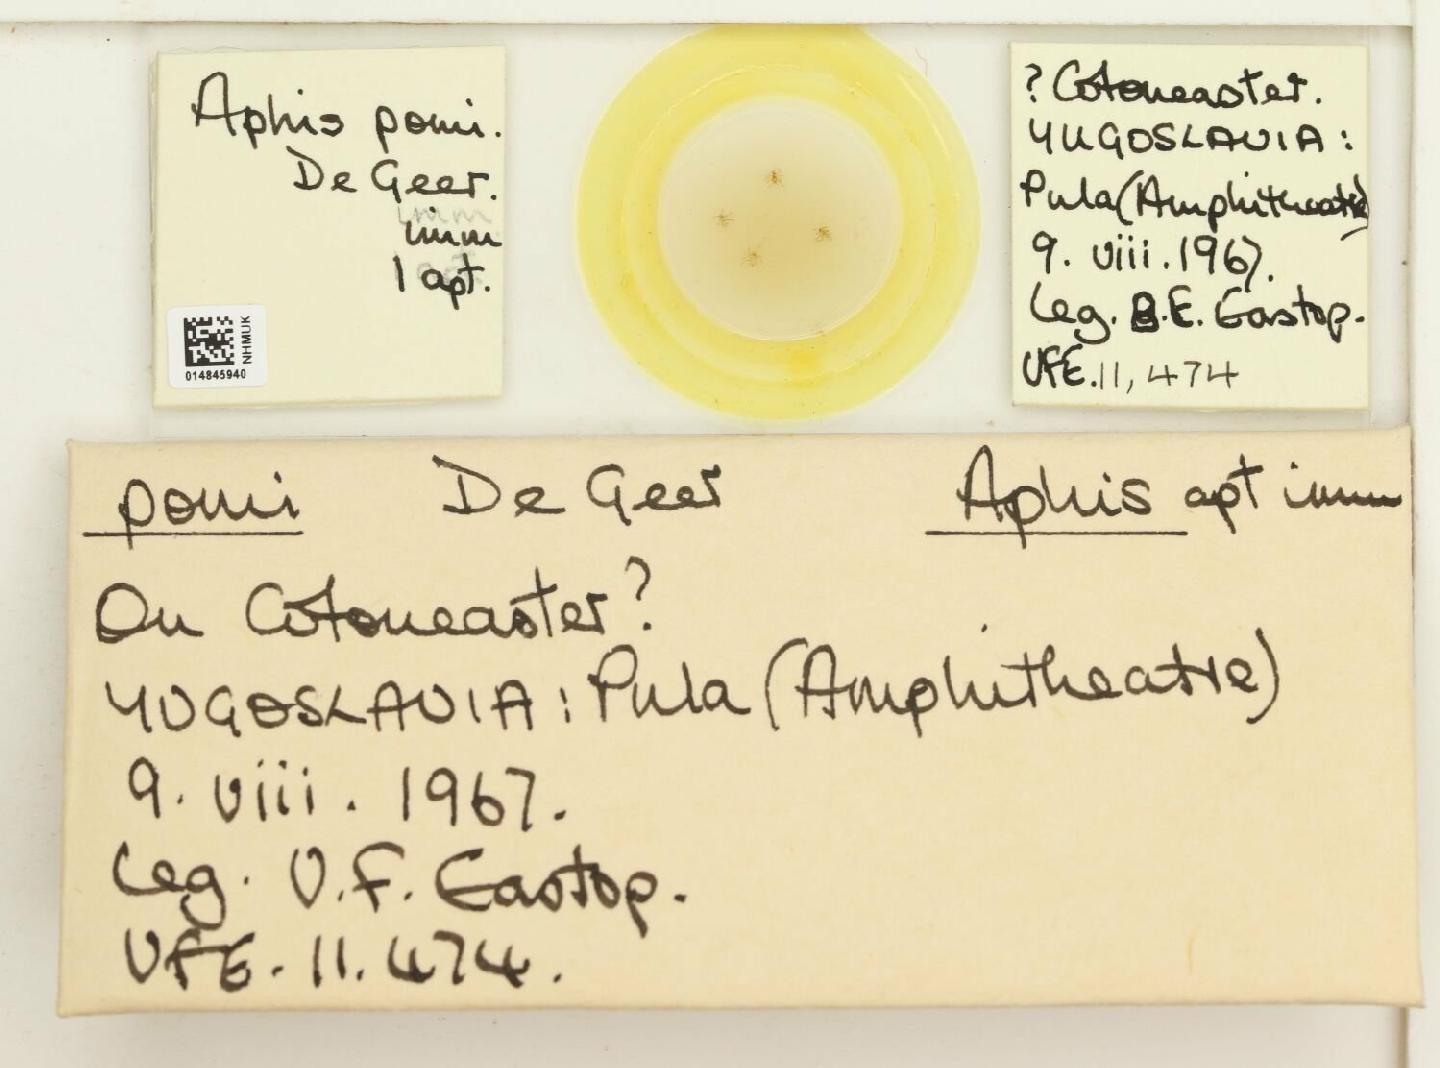 Aphis pomi.
De Geer.
imm
imm
1 apt.
NHMUK
014845940
? Cotoneaster.
YUGOSLAVIA:
Pula (Amphitheatre)
9. viii. 1967.
Leg. B.E. Eastop.
VFE. 11, 474
pomi De Geer Aphis apt imm
On Cotoneaster?
YUGOSLAVIA: Pula (Amphitheatre)
9. viii. 1967.
Leg. V.F. Eastop.
VFE. 11. 474.